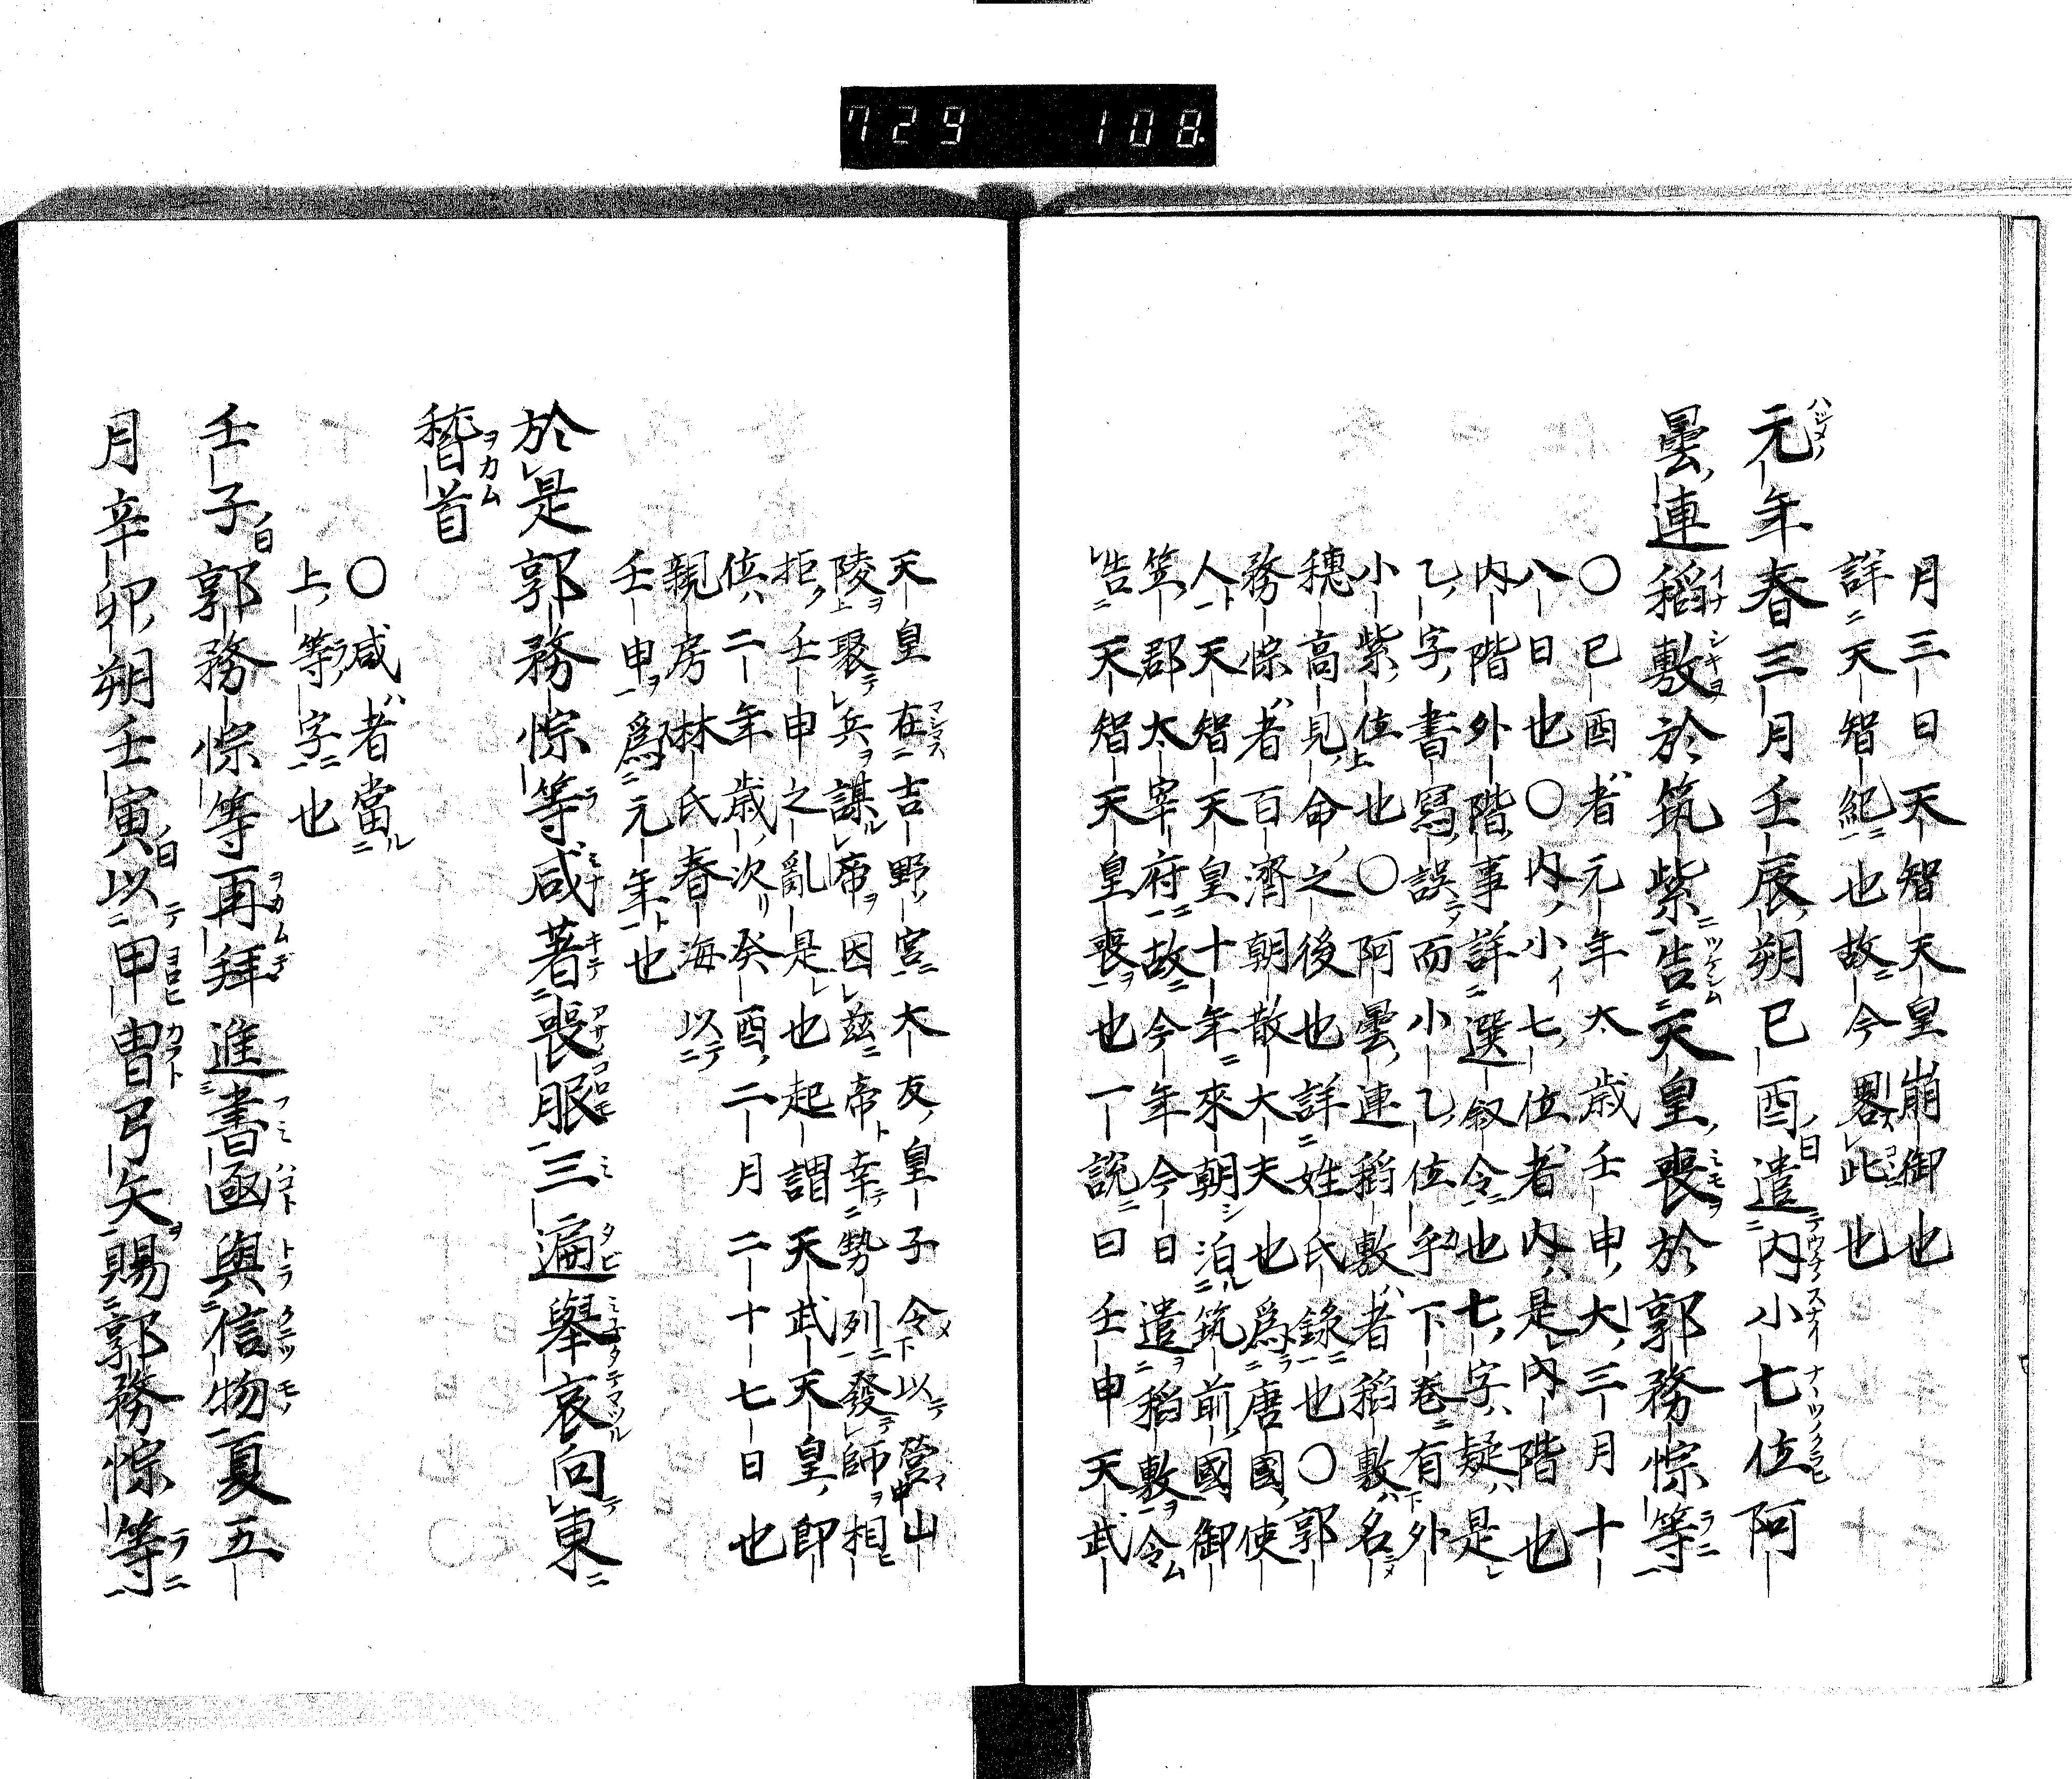 729 108
月三日天智天皇崩御也
詳天智紀也故今畧此也
元年春三月壬辰朔己酉遣内小七位阿
曇連稻敷於筑紫告天皇喪於郭務悰等
〇已酉者元年太歳壬申大三月十
八日也〇内小七位者内是内階也
内階外階事詳選叙令也七字疑是
乙字書寫誤而小乙位乎下卷有外
小紫位也〇阿曇連稻敷者稻敷名
穗高見命之後也詳姓氏錄也〇郭
務悰者百濟朝散大夫也爲唐國使
人天智天皇十年來朝泊筑前國御
笠郡太宰府故今年今日遣稻敷令
告天智天皇喪也一說曰壬申天武
天皇在吉野宮大友皇子令以營山
陵聚兵謀帝因茲帝幸勢列發師相
拒壬申之亂是也起謂天武天皇即
位二年歳次癸酉二月二十七日也
親房林氏春海以
壬申爲元年也
於是郭務悰等咸著喪服三遍舉哀向東
稽首
〇咸者當
上等字也
壬子郭務悰等再拜進書凾與信物夏五
月辛卯朔壬寅以甲冑弓矢賜郭務悰等